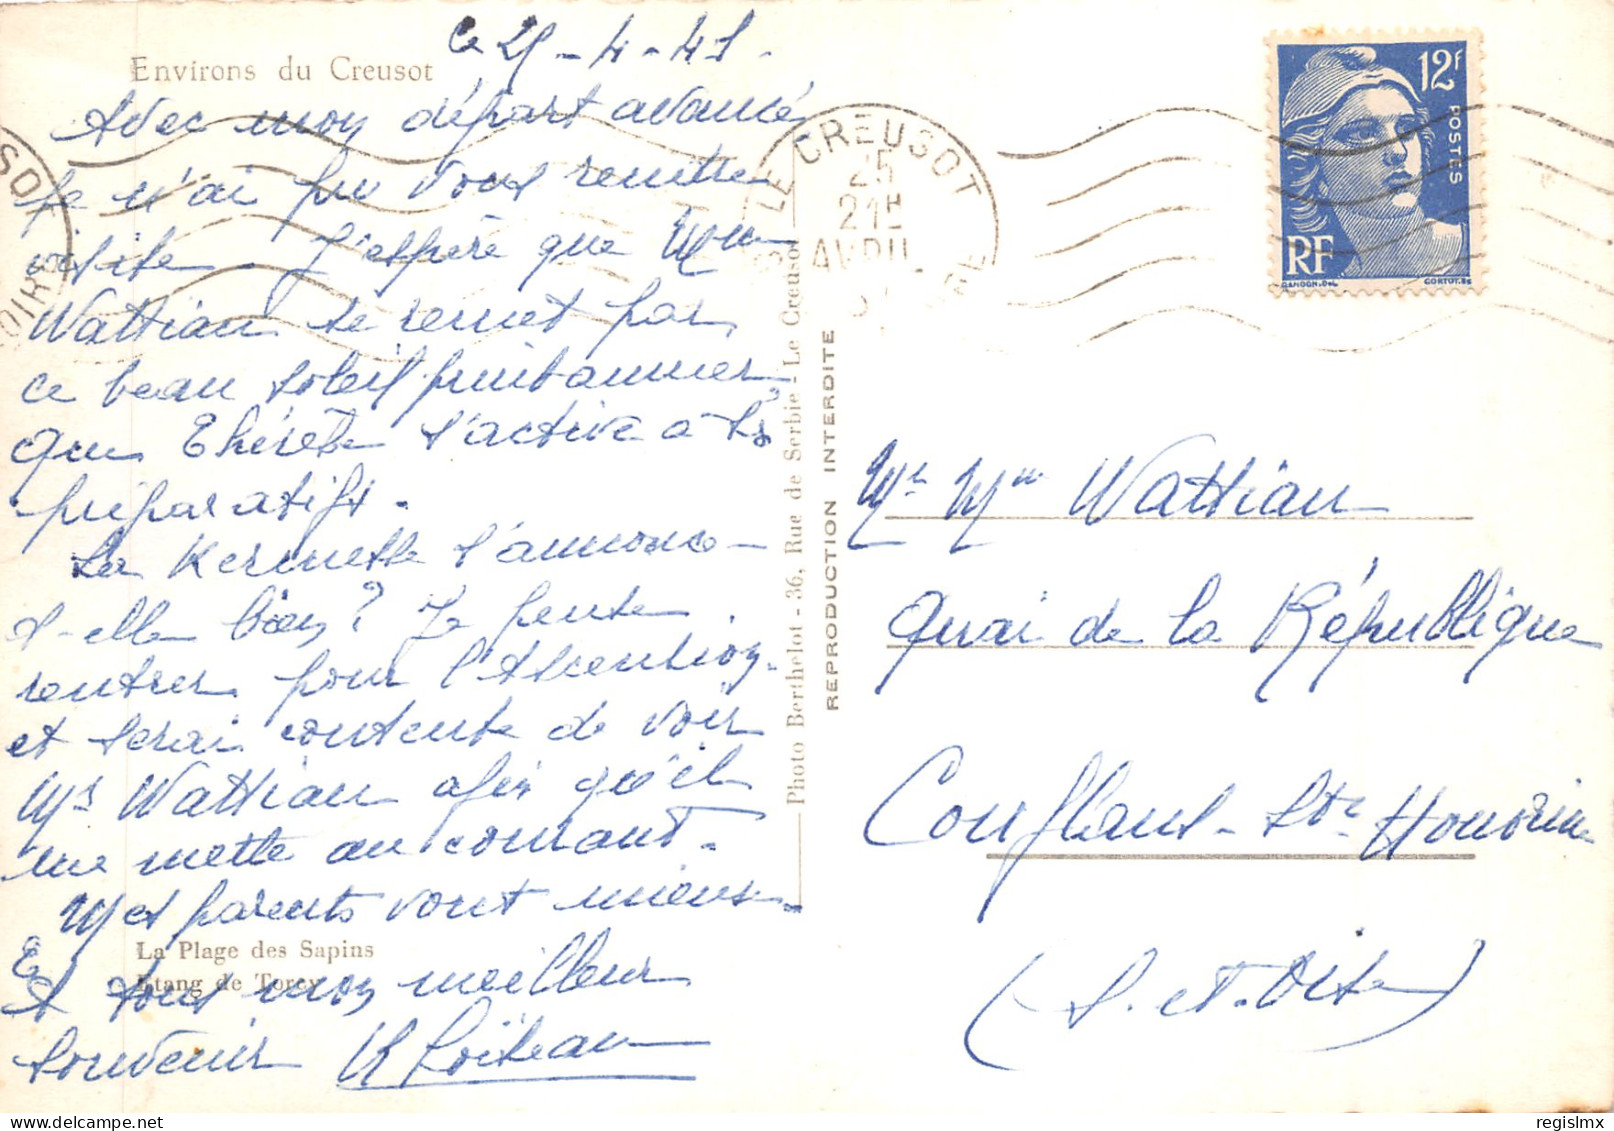 Environs du Creusot
Ce 25-4-
Avec mon départ avancé
je n'ai pu vous rendre
visite. J'espère que Mme
Wattiau se remet par
ce beau soleil printannier,
que Thérèse s'active à ses
préparatifs.
La Kermesse s'annonce-
t-elle bien? Je pense
rentrer pour l'Ascension
et serai contente de voir
Mr Wattiau afin qu'il
me mette au courant.
Mes parents vont mieux.
La Plage des Sapins
Etang de Torcy
A tous mon meilleur
souvenir
Photo Berthelot - 36, Rue de Serbie - Le Creusot
REPRODUCTION INTERDITE
LE CREUSOT
25
21H
AVRIL
12F
POSTES
RF
GANDON.DEL
CORTOT.SC
Mr Mme Wattiau
Quai de la République
Conflans-Ste Honorine
(S.-et-Oise)
regislmx